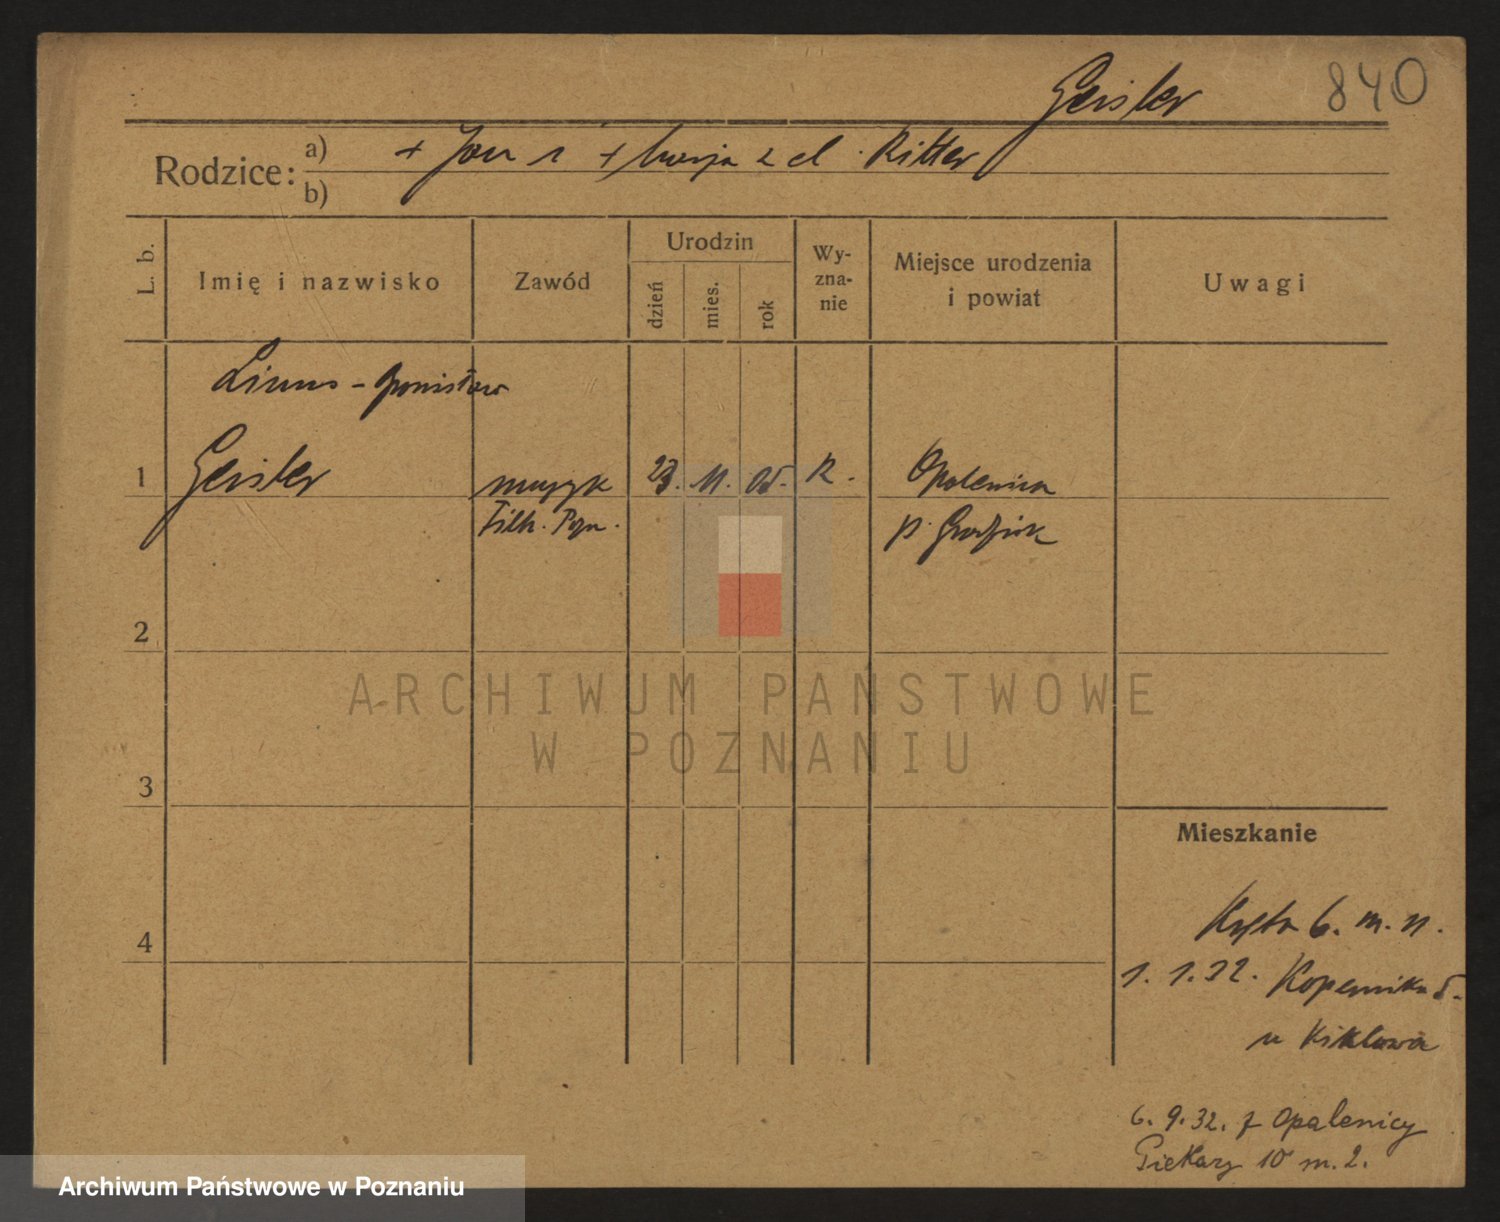 Geisler
840
Rodzice:
a) + Jan i + Marja z d. Ritter
b)
L. b.
Imię i nazwisko
Zawód
Urodzin
dzień
mies.
rok
Wy-
zna-
nie
Miejsce urodzenia
i powiat
Uwagi
Linus -
1 Geisler
muzyk
Filh. Pozn.
23. 11. 05.
R.
Opalenica
p. Grodzisk
2
3
4
ARCHIWUM PAŃSTWOWE
W POZNANIU
Mieszkanie
6. m. 11.
1. 1. 32. Kopernika 5.
u
6. 9. 32. z Opalenicy
Piekary 10 m. 2.
Archiwum Państwowe w Poznaniu